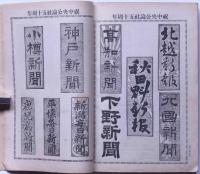 祝中央公論社五十周年
北越新報
北國新聞
秋田魁新報
高知新聞
下野新聞
祝中央公論社五十周年
神戸新聞
小樽新聞
新潟毎日新聞